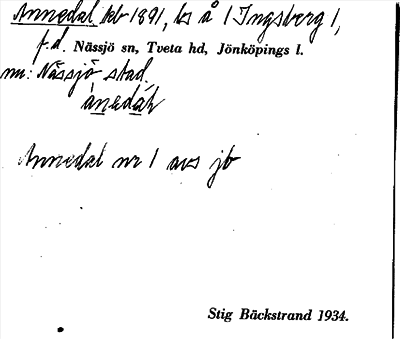 Annedal kb 1891, ls å 1 Ingsberg 1,
f.d. Nässjö sn, Tveta hd, Jönköpings l.
nu: Nässjö stad.
ànedáh
Annedal nr 1 avs jb
Stig Bäckstrand 1934.